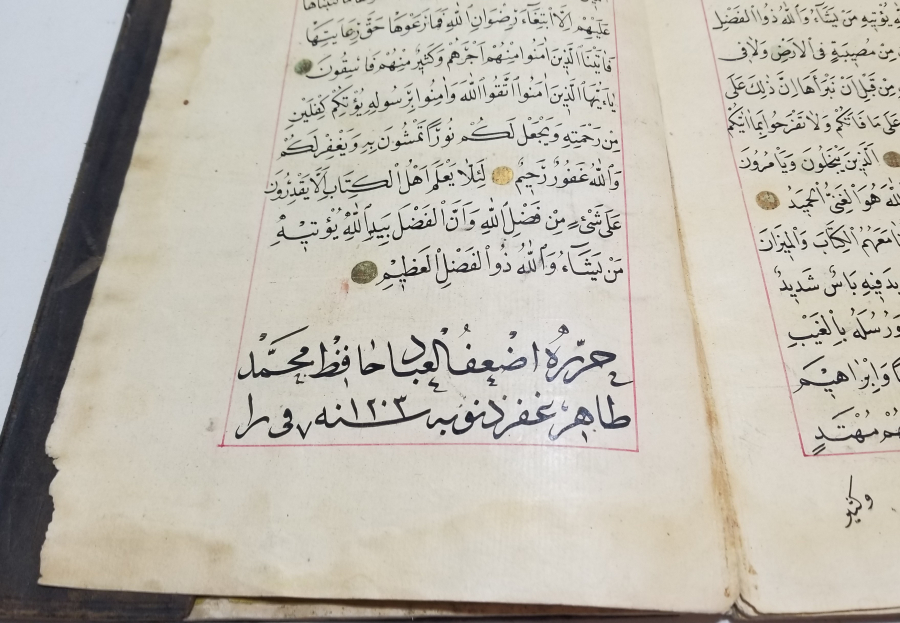 يُؤْتِيهِ مَنْ يَشَآءُ وَاللّٰهُ ذُو الْفَضْلِ
مِنْ مُصِيبَةٍ فِي الْاَرْضِ وَلَا فِي
مِنْ قَبْلِ اَنْ نَبْرَاَهَا اِنَّ ذٰلِكَ عَلَى
عَلٰى مَا فَاتَكُمْ وَلَا تَفْرَحُوا بِمَا اٰتٰيكُمْ
اَلَّذِينَ يَبْخَلُونَ وَيَاْمُرُونَ
هُوَ الْغَنِيُّ الْحَمِيدُ
مَعَهُمُ الْكِتَابَ وَالْمِيزَانَ
فِيهِ بَاْسٌ شَدِيدٌ
وَرُسُلَهُ بِالْغَيْبِ
وَاِبْرَاهِيمَ
مُهْتَدٍ
وكثير
عَلَيْهِمْ اِلَّا ابْتِغَآءَ رِضْوَانِ اللّٰهِ فَمَا رَعَوْهَا حَقَّ رِعَايَتِهَا
فَاٰتَيْنَا الَّذِينَ اٰمَنُوا مِنْهُمْ اَجْرَهُمْ وَكَثِيرٌ مِنْهُمْ فَاسِقُونَ
يَآءَيُّهَا الَّذِينَ اٰمَنُوا اتَّقُوا اللّٰهَ وَاٰمِنُوا بِرَسُولِهِ يُؤْتِكُمْ كِفْلَيْنِ
مِنْ رَحْمَتِهِ وَيَجْعَلْ لَكُمْ نُورًا تَمْشُونَ بِهِ وَيَغْفِرْ لَكُمْ
وَاللّٰهُ غَفُورٌ رَحِيمٌ لِئَلَّا يَعْلَمَ اَهْلُ الْكِتَابِ اَلَّا يَقْدِرُونَ
عَلٰى شَيْءٍ مِنْ فَضْلِ اللّٰهِ وَاَنَّ الْفَضْلَ بِيَدِ اللّٰهِ يُؤْتِيهِ
مَنْ يَشَآءُ وَاللّٰهُ ذُو الْفَضْلِ الْعَظِيمِ
حرّره اضعف العباد حافظ محمّد
طاهر غفر ذنوبه سنه ١٢٠٣ فى را